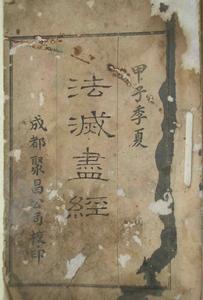 甲子季夏
法滅盡經
成都聚昌公司榇印